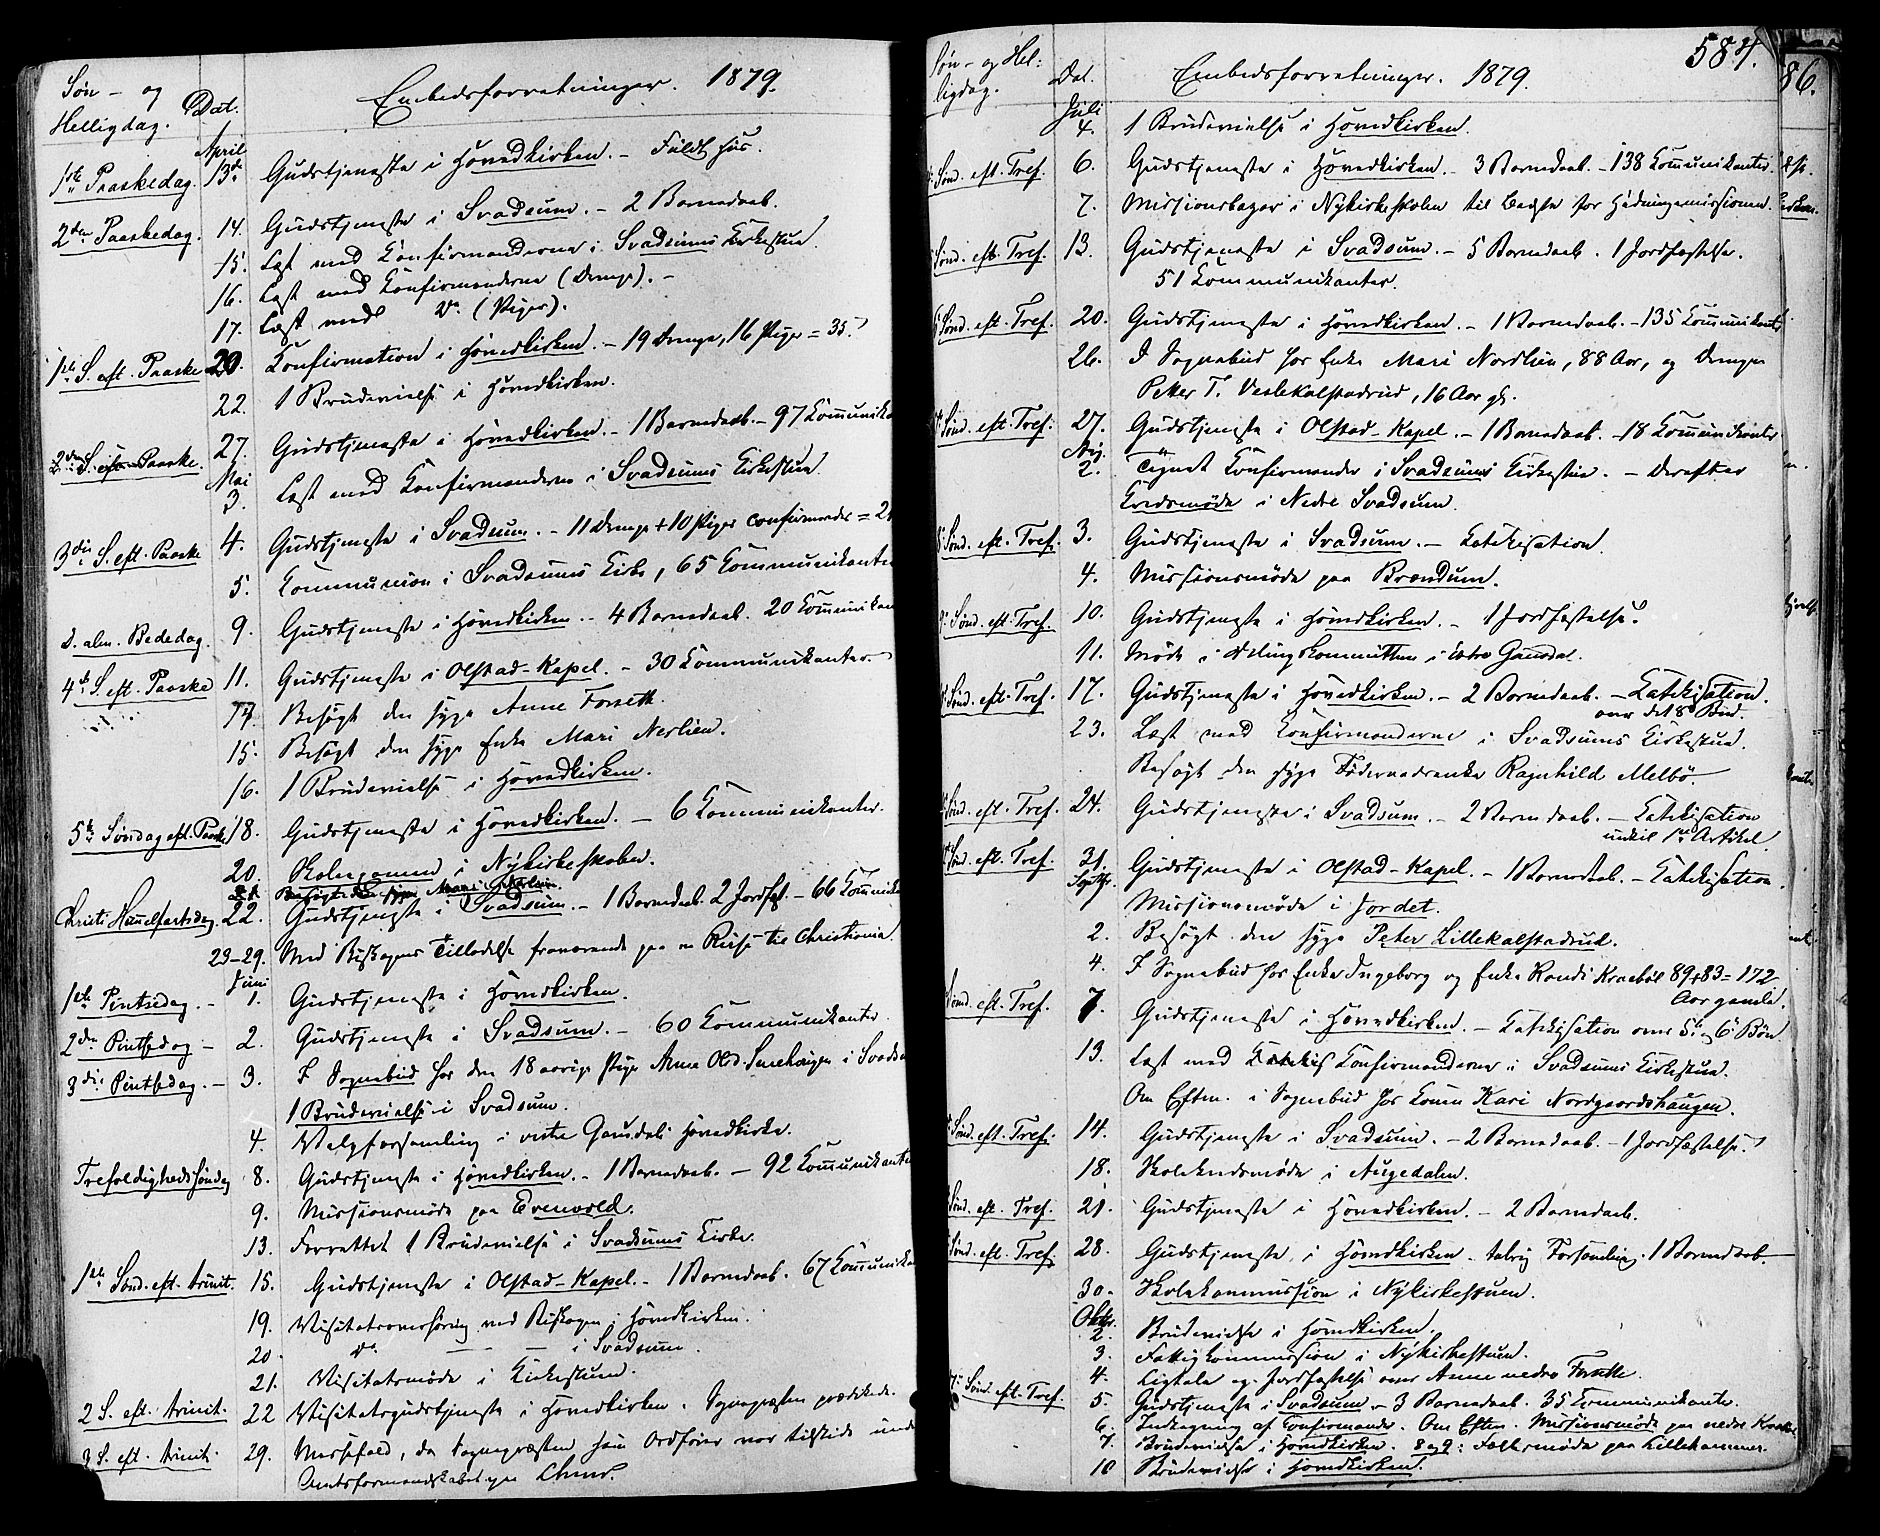 Søn- og
Helligdag.
Dat.
Embedsforretninger. 1879.
April
1ste Paaskedag. 13de Gudstjeneste i Hovedkirken. - Fuldt Hus.
2den Paaskedag. 14. Gudstjeneste i Svadsum. - 2 Barnedaab.
15. Læst med Konfirmanderne i Svadsums Kirkestue.
16. Læst med Konfirmanderne (Drenge). -
17. Læst med Do (Piger).
1ste S. eft. Paaske 20. Konfirmation i Hovedkirken. - 19 Drenge, 16 Piger = 35.
22. 1 Brudevielse i Hovedkirken.
2den S. eft. Paaske. 27. Gudstjeneste i Hovedkirken. - 1 Barnedaab. - 97 Kommunika
Mai
3. Læst med Konfirmanderne i Svadsums Kirkestue.
3die S. eft. Paaske 4. Gudstjeneste i Svadsum. - 11 Drenge + 10 Piger confirmerede = 21
5. Communion i Svadsums Kirke, 65 Kommunikanter
D. alm. Bededag. 9. Gudstjeneste i Hovedkirken. - 4 Barnedaab. 20 Kommunikan
4de S. eft. Paaske 11. Gudstjeneste i Olstad-Kapel. - 30 Kommunikanter.
14. Besøgt den syge Anne Forseth.
15. Besøgt den syge Enke Mari Nerlien.
16. 1 Brudevielse i Hovedkirken.
5te Søndag eft. Paaske 18. Gudstjeneste i Hovedkirken. - 6 Kommunikanter.
20. Skoleexamen i Nykirkeskolen.
Christi Himmelfartsdag. 22. Gudstjeneste i Svadsum. - 1 Barnedaab 2 Jordfæst. - 66 Kommunika
23-29. Med Biskopens Tilladelse fraværende paa en Reise til Christiania.
Juni
1ste Pintsedag. - 1. Gudstjeneste i Hovedkirken.
2den Pintsedag - 2. Gudstjeneste i Svadsum. - 60 Kommunikanter.
3die Pintsedag. - 3. I Sognebud hos den 18 aarige Pige Anne Olsd. i Svadsu
1 Brudevielse i Svadsum.
4. Valgforsamling i vestre Gausdals Hovedkirke.
Trefoldigheds Søndag 8. Gudstjeneste i Hovedkirken. - 1 Barnedaab. - 92 Kommunikanter
9. Missionsmøde paa Evenvold.
13. Forrettet 1 Brudevielse i Svadsums Kirke.
1ste Sønd. eft. Trinit. 15. Gudstjeneste i Olstad-Kapel. - 1 Barnedaab. 67 Kommunika
19. Visitatsoverhøring ved Biskopen i Hovedkirken.
20. Do - - - i Svadsum.
21. Visitatsmøde i Kirkestuen.
2 S. eft. Trinit. 22 Visitatsgudstjeneste i Hovedkirken. Sognepræsten prædikede.
3 S. eft. Trinit. 29. Messefald, da Sognepræsten som Ordfører var tilstede under
Amtsformandskabets
584.
Søn- og Hel-
ligdag.
Dat.
Embedsforretninger. 1879.
Juli
4. 1 Brudevielse i Hovedkirken.
Sønd. eft. Tref. 6. Gudstjeneste i Hovedkirken. - 3 Barnedaab. - 138 Kommunikanter.
7. Missionsbazar i Nykirkeskolen til Bedste for Hedningemissionen.
Sønd. eft. Tref. 13. Gudstjeneste i Svadsum. - 5 Barnedaab. 1 Jordfæstelse.
51 Kommunikanter.
Sønd. eft. Tref. 20. Gudstjeneste i Hovedkirken. - 1 Barnedaab. - 135 Kommunikant
26. I Sognebud hos Enke Mari Nordlien, 88 Aar, og Drengen
Petter T. Veslekalstadrud, 16 Aar gl.
Sønd. eft. Tref. 27. Gudstjeneste i Olstad-Kapel. - 1 Barnedaab. - 18 Kommunikanter
Aug.
2. Tegnet Konfirmander i Svadsums Kirkestue. - Derefter
Kredsmøde i Nedre Svadsum.
Sønd. eft. Tref. 3. Gudstjeneste i Svadsum. - Katekisation.
4. Missionsmøde paa Brændum.
Sønd. eft. Tref. 10. Gudstjeneste i Hovedkirken. - 1 Jordfæstelse.
11. Møde i i østre Gausdal.
Sønd. eft. Tref. 17. Gudstjeneste i Hovedkirken. - 2 Barnedaab. - Katekisation
over det 8de Bud.
23. Læst med Konfirmanderne i Svadsums Kirkestue.
Besøgt den syge Føderaadsenke Ragnhild Melbø
Sønd. eft. Tref. 24. Gudstjeneste i Svadsum. - 2 Barnedaab. - Katekisation
1ste Artikel.
Sønd. eft. Tref. 31. Gudstjeneste i Olstad-Kapel. - 1 Barnedaab. - Katekisation.
Septbr.
1 Missionsmøde i Jordet.
2. Besøgt den syge Peter Lillekalstadrud.
4. I Sognebud hos Enke Ingeborg og Enke Rondi 89+83 = 172
Aar gamle.
Sønd. eft. Tref. 7. Gudstjeneste i Hovedkirken. - Katekisation over 5te og 6te Bøn
13. Læst med Konfirmanderne i Svadsums Kirkestue.
Om Efterm. i Sognebud hos Konen Kari Nordgaardshaugen.
Sønd. eft. Tref. 14. Gudstjeneste i Svadsum. - 2 Barnedaab. - 1 Jordfæstelse.
18. Skolekredsmøde i Augedalen.
Sønd. eft. Tref. 21. Gudstjeneste i Hovedkirken. - 2 Barnedaab.
Sønd. eft. Tref. 28. Gudstjeneste i Hovedkirken. talrig Forsamling. 1 Barnedaab.
30. Skolekommission i Nykirkestuen.
Oktbr.
2. Brudevielse i Hovedkirken.
3. Fattigkommission i Nykirkestuen.
4. Ligtale og Jordfæstelse over Anne nedre Forseth.
Sønd. eft. Tref. 5. Gudstjeneste i Svadsum - 3 Barnedaab. 35 Kommunikanter.
6. af Konfirmander. Om Efterm. Missionsmøde paa nedre
7. Brudevielse i Hovedkirken. 8 og 9: Folkemøde paa Lillehammer.
10 Brudevielse i Hovedkirken.
86.